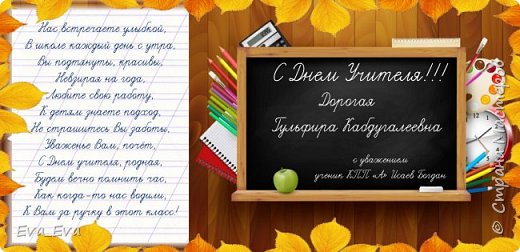 Нас встречаете улыбкой,
В школе каждый день с утра,
Вы подтянуты, красивы,
Невзирая на года,
Любите свою работу,
К детям знаете подход,
Не страшитесь Вы заботы,
Уваженье Вам, почёт,
С Днем Учителя, родная,
Будем вечно помнить час,
Как когда-то нас водили,
К Вам за ручку в этот класс!
Eva_Eva
С Днем Учителя!!!
Дорогая
Гульфира Кабдугалеевна
с уважением
ученик КПП «А» Исаев Богдан
© Страна Мастеров